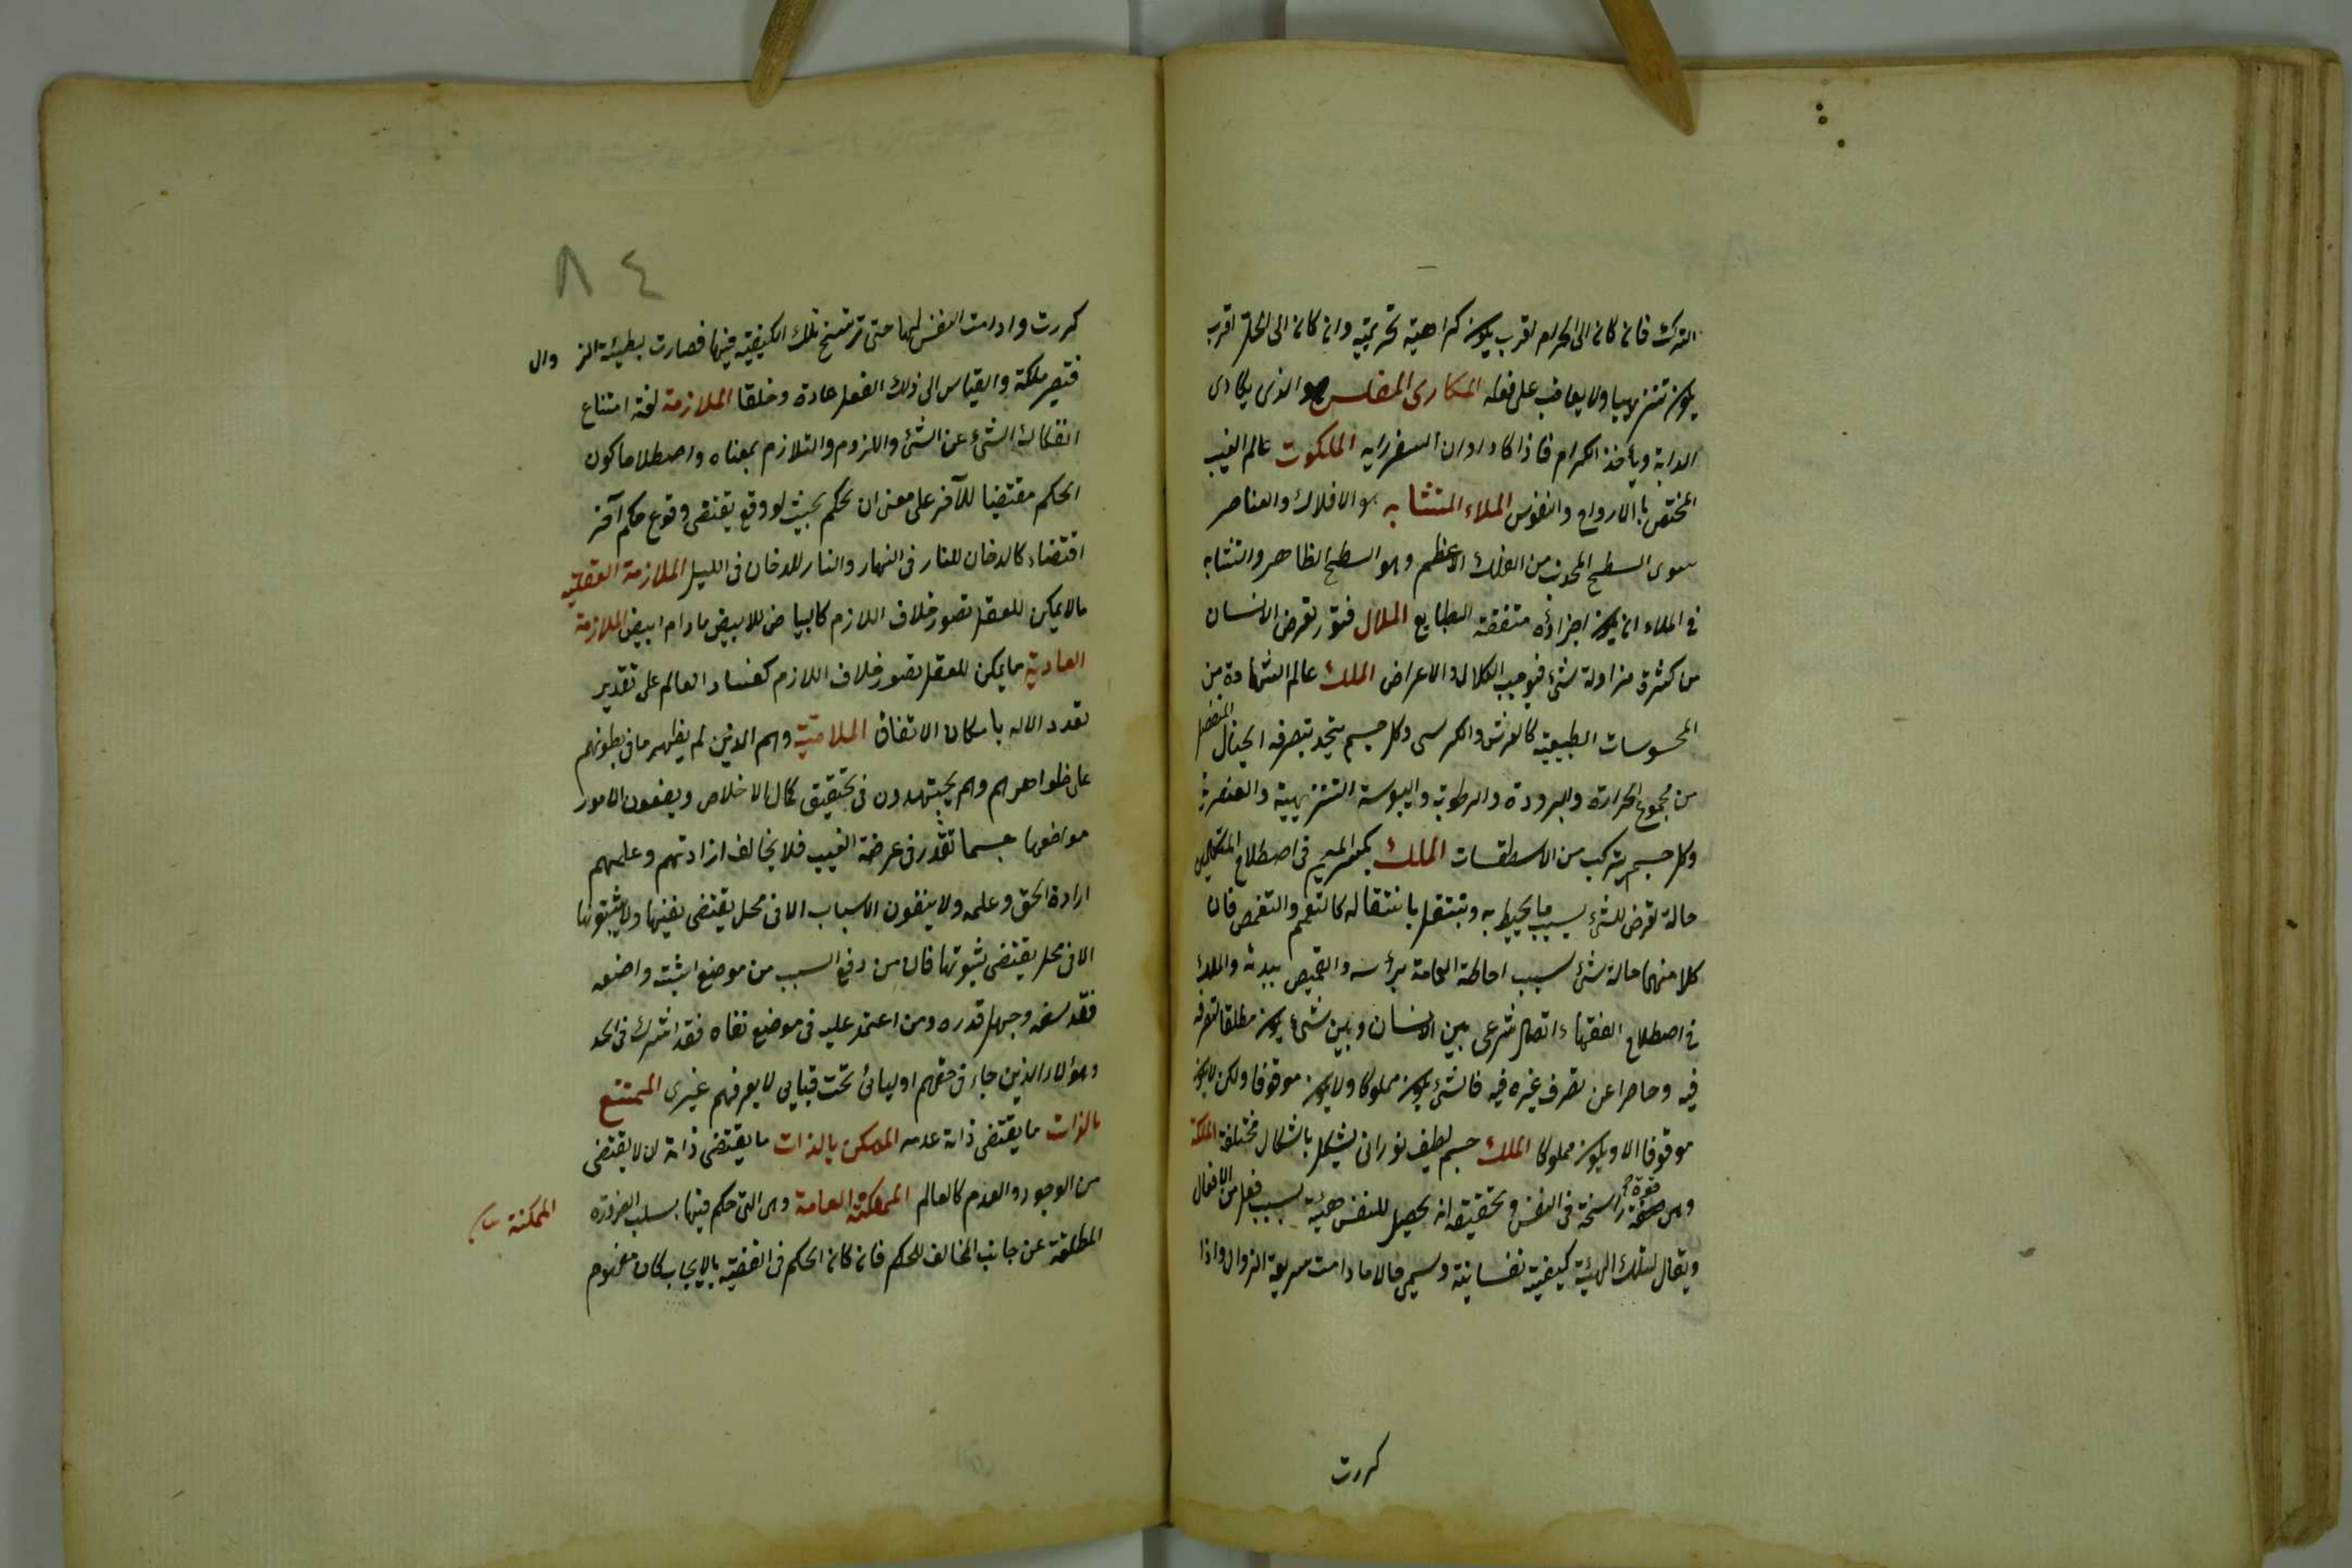 الترك فان كان الى الحرام اقرب يكون كراهية تحريمية وان كان الى الحل اقرب
يكون تنزيهيا ولا يعاقب على فعله المكارى المفلس هو الذى يكارى
الدابة ويأخذ الكرام فاذا كاد اوان السفر رايه الملكوت عالم الغيب
المختص بالارواح والنفوس الملاء المتشابه هو الافلاك والعناصر
سوى السطح المحدب من الفلك الاعظم وهو السطح الظاهر والتشابه
فى الملاء ان يكون اجزاؤه متفقة الطبايع الملال فتور تعرض الانسان
من كثرة مزاولة شئ فيوجب الكلال والاعراض الملك عالم الشهادة من
المحسوسات الطبيعية كالعرش والكرسى وكل جسم يتحد بتصرف الخيال المنفصل
من مجموع الحرارة والبرودة والرطوبة واليبوسة التنزيهية والعنصرية
وكل جسم يتركب من الاسطقسات الملك بكسر الميم فى اصطلاح المتكلمين
حالة تعرض للشئ بسبب ما يحيط به وتنتقل بانتقاله كالتعمم والتقمص فان
كلا منهما حالة شئ بسبب احاطة العمامة برأسه والقميص ببدنه والملك
فى اصطلاح الفقهاء اتصال شرعى بين الانسان وبين شئ يكون مطلقا لتصرفه
فيه وحاصرا عن تصرف غيره فيه فالشئ يكون مملوكا ولا يكون موقوفا ولكن لا يكون
موقوفا الا ويكون مملوكا الملك جسم لطيف نورانى يتشكل باشكال مختلفة الملكة
وهى صفة راسخة فى النفس وتحقيقه انه يحصل للنفس هيئة بسبب فعل من الافعال
ويقال لتلك الهيئة كيفية نفسانية وسمى حالا ما دامت سريعة الزوال واذا
كررت
٨٤
كررت وادامت النفس لها حتى ترتسخ تلك الكيفية فيها فصارت بطيئة الزوال
فتصير ملكة والقياس الى ذلك الفعل عادة وخلقا الملازمة لغة امتناع
انفكاك الشئ عن الشئ واللزوم والتلازم بمعناه واصطلاحا كون
الحكم مقتضيا للآخر على معنى ان الحكم بحيث لو وقع يقتضى وقوع حكم آخر
اقتضاء كالدخان للنار فى النهار والنار للدخان فى الليل الملازمة العقلية
ما لا يمكن للعقل تصور خلاف اللازم كالبياض للابيض ما دام ابيض الملازمة
العادية ما يمكن للعقل تصور خلاف اللازم كفساد العالم على تقدير
تعدد الاله بامكان الاتفاق الملامتية وهم الذين لم يظهر ما فى بطونهم
على ظواهرهم وهم يجتهدون فى تحقيق كمال الاخلاص ويضعون الامور
مواضعها حسبما تقرر فى عرضة الغيب فلا يخالف ارادتهم وعلمهم
ارادة الحق وعلمه ولا ينفون الاسباب الا فى محل يقتضى نفيها ولا يثبتونها
الا فى محل يقتضى ثبوتها فان من رفع السبب من موضع اثبته واضعه
فقد سفه وجهل قدره ومن اعتمد عليه فى موضع نفاه فقد اشرك فى الحد
وهؤلاء الذين جاء فى حقهم اوليائى تحت قبابى لا يعرفهم غيرى الممتنع
بالذات ما يقتضى ذاته عدمه الممكن بالذات ما يقتضى ذاته ان لا يقتضى
من الوجود والعدم كالعالم الممكنة العامة وهى التى حكم فيها بسلب الضرورة
الممكنة
المطلقة عن جانب المخالف للحكم فان كان الحكم فى القضية بالايجاب كان مفهوم